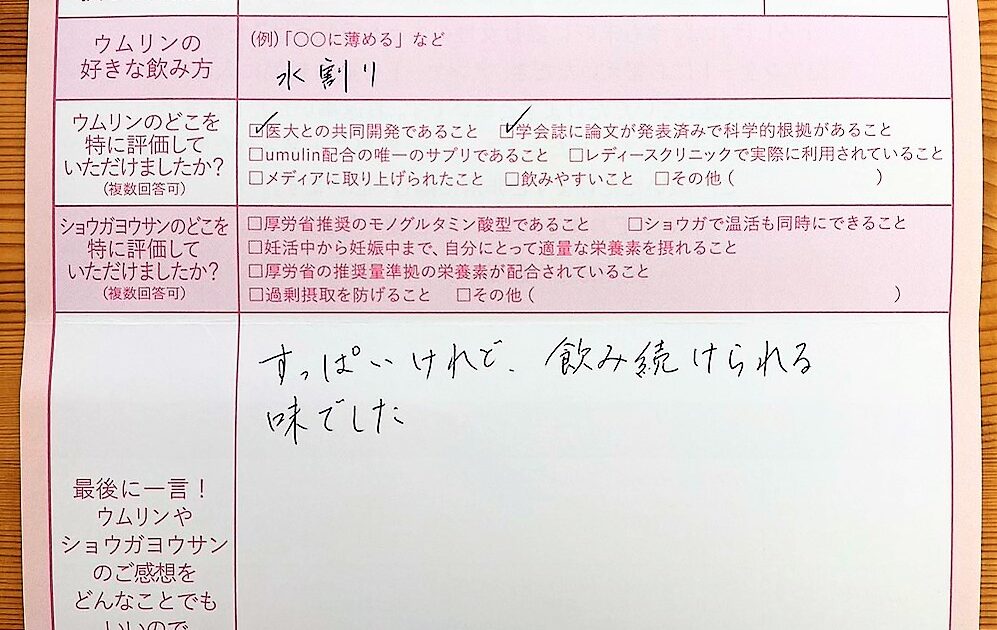 ウムリンの
好きな飲み方
(例)「〇〇に薄める」など
水割り
ウムリンのどこを
特に評価して
いただけましたか?
(複数回答可)
☑医大との共同開発であること ☑学会誌に論文が発表済みで科学的根拠があること
□umulin配合の唯一のサプリであること □レディースクリニックで実際に利用されていること
□メディアに取り上げられたこと □飲みやすいこと □その他( )
ショウガヨウサンのどこを
特に評価して
いただけましたか?
(複数回答可)
□厚労省推奨のモノグルタミン酸型であること □ショウガで温活も同時にできること
□妊活中から妊娠中まで、自分にとって適量な栄養素を摂れること
□厚労省の推奨量準拠の栄養素が配合されていること
□過剰摂取を防げること □その他( )
最後に一言!
ウムリンや
ショウガヨウサン
のご感想を
どんなことでも
いいので
すっぱいけれど、飲み続けられる
味でした